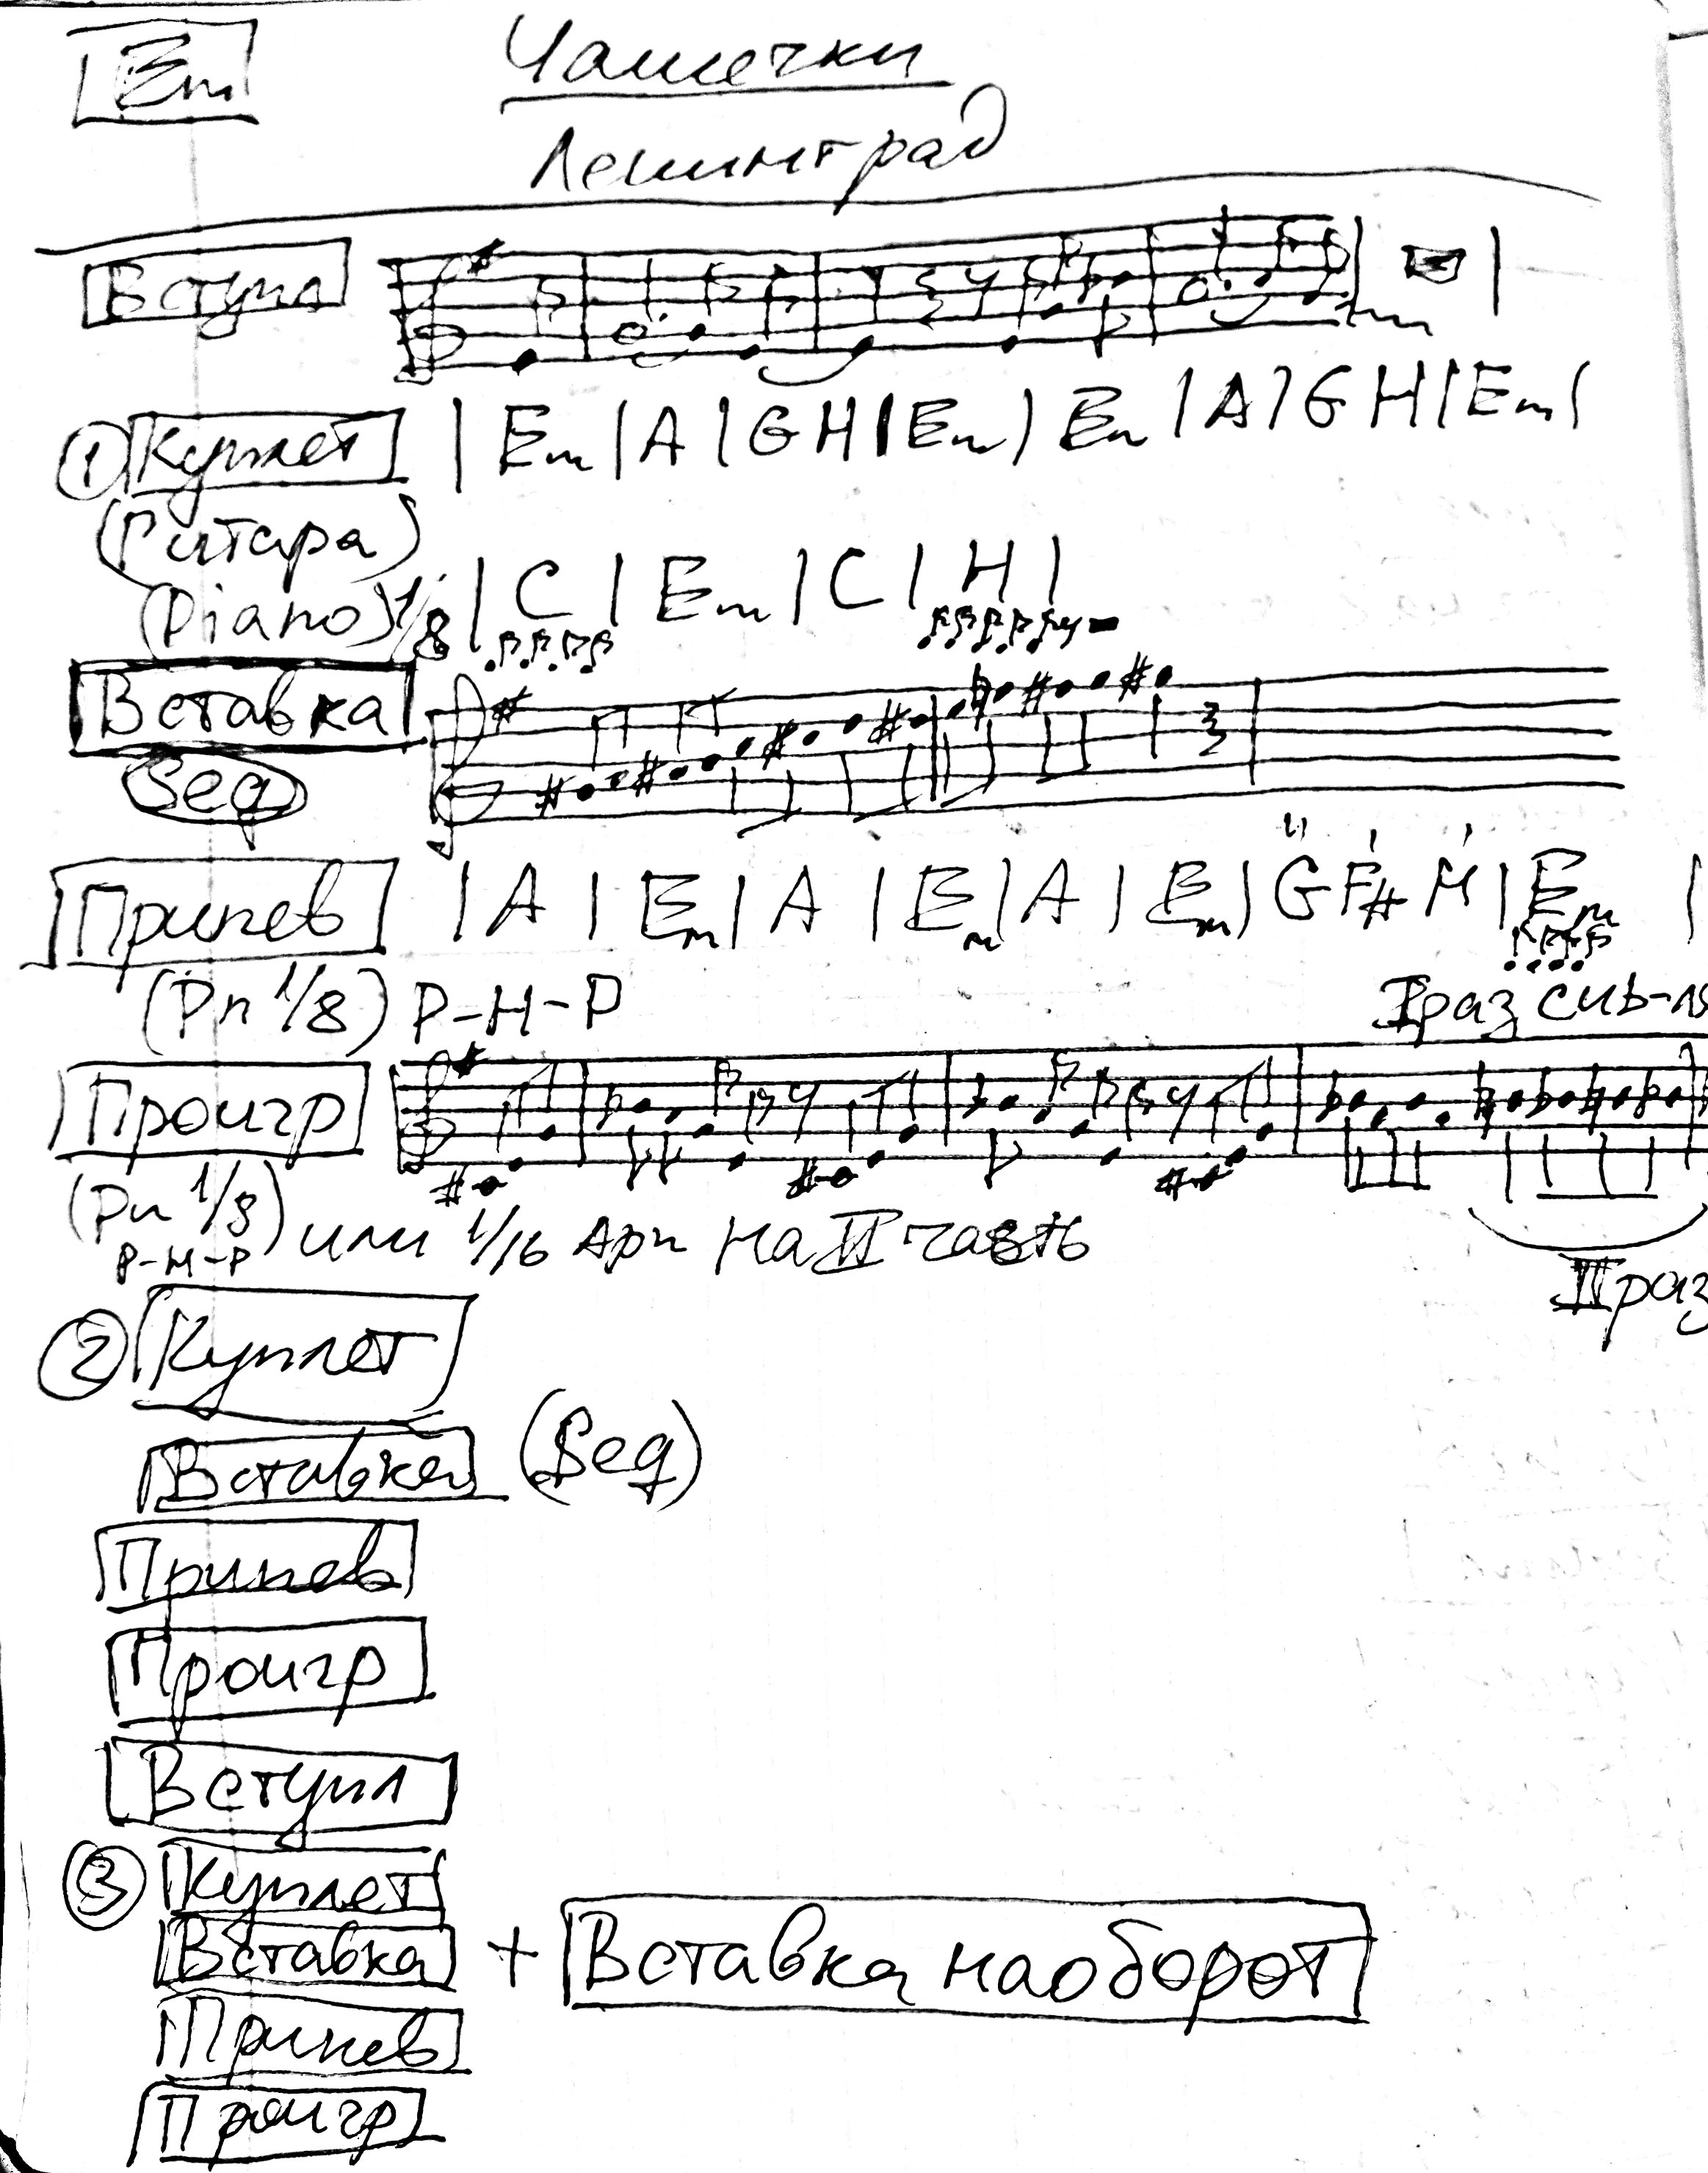 Em Чашечки
Ленинград
Вступл
① Куплет | Em | A | G H | Em | Em | A | G H | Em |
(Гитара)
(Piano) 1/8 | C | Em | C | H |
Вставка
Seq
Припев | A | Em | A | Em | A | Em | G F# H | Em |
(Pn 1/8) Р-Н-Р
I раз
Проигр
(Pn 1/8) или 1/16 Арп на II часть
Р-Н-Р
II раз
② Куплет
Вставка (Seq)
Припев
Проигр
Вступл
③ Куплет
Вставка + Вставка наоборот
Припев
Проигр